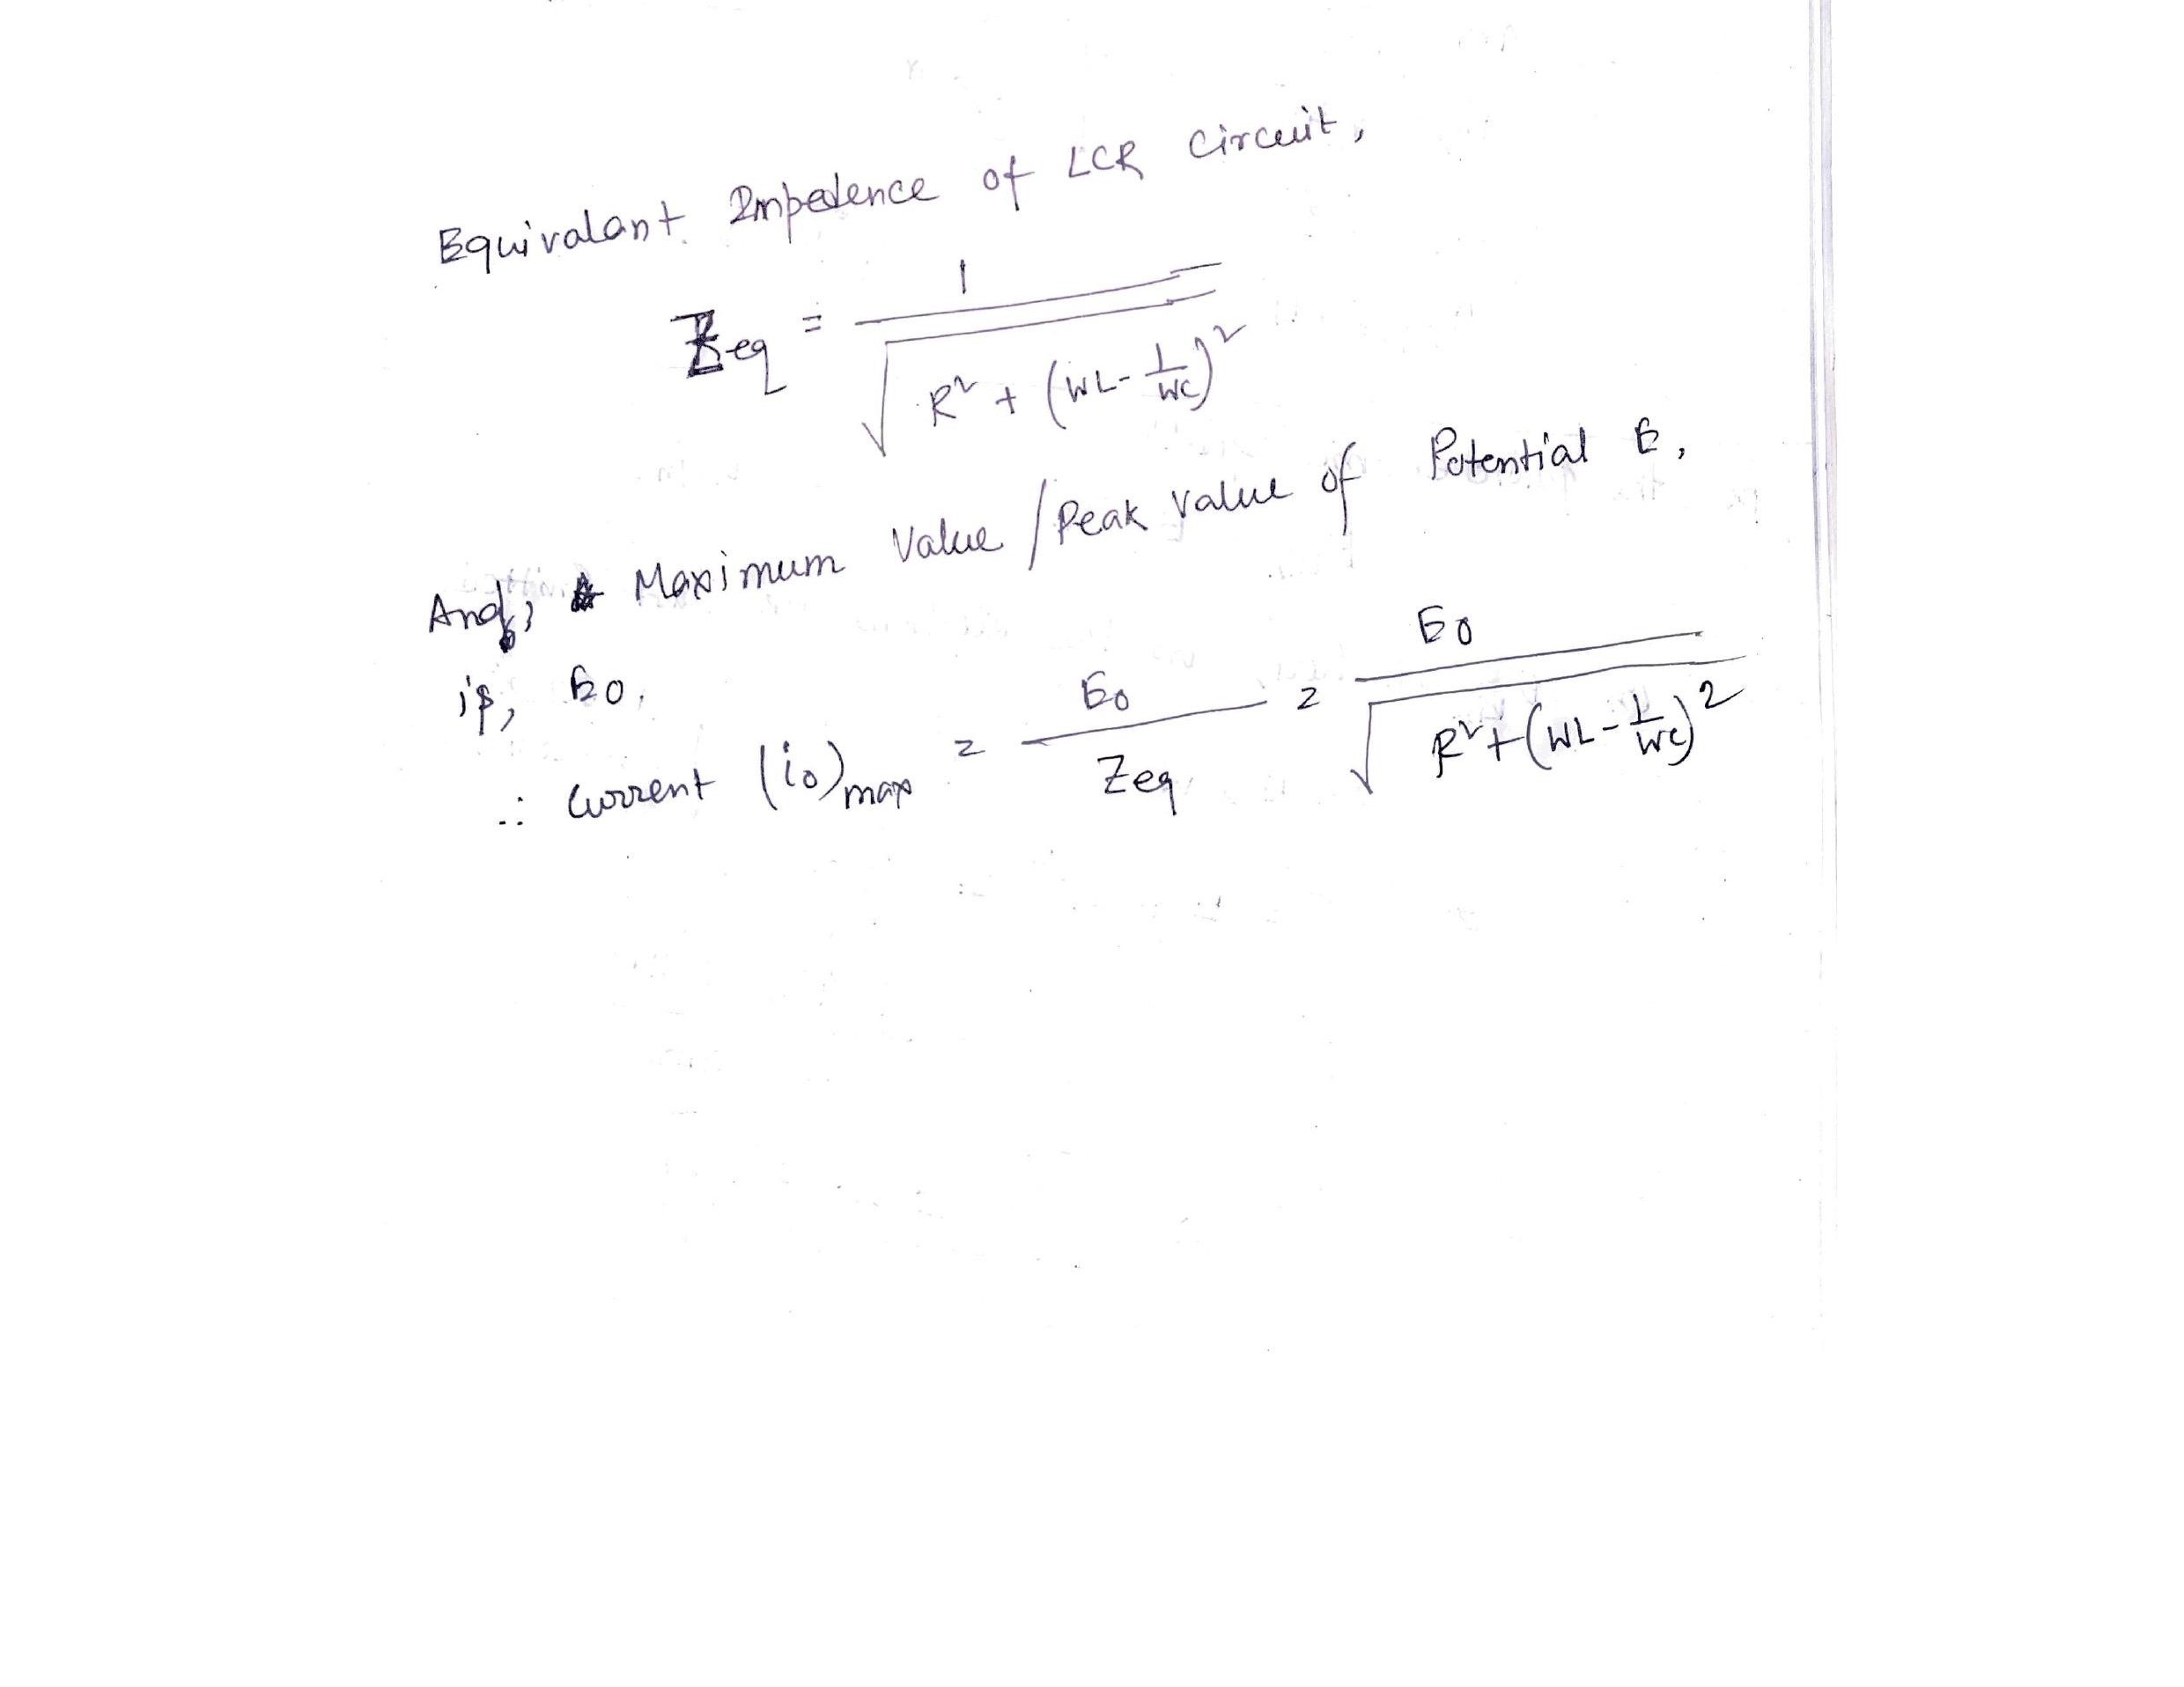 Equivalant Impedence of LCR Circuit,
Zeq = 1 / √(R² + (WL - 1/WC)²)
And, Maximum Value / Peak value of Potential E,
is, E0.
∴ Current (i0)max = E0 / Zeq = E0 / √(R² + (WL - 1/WC)²)